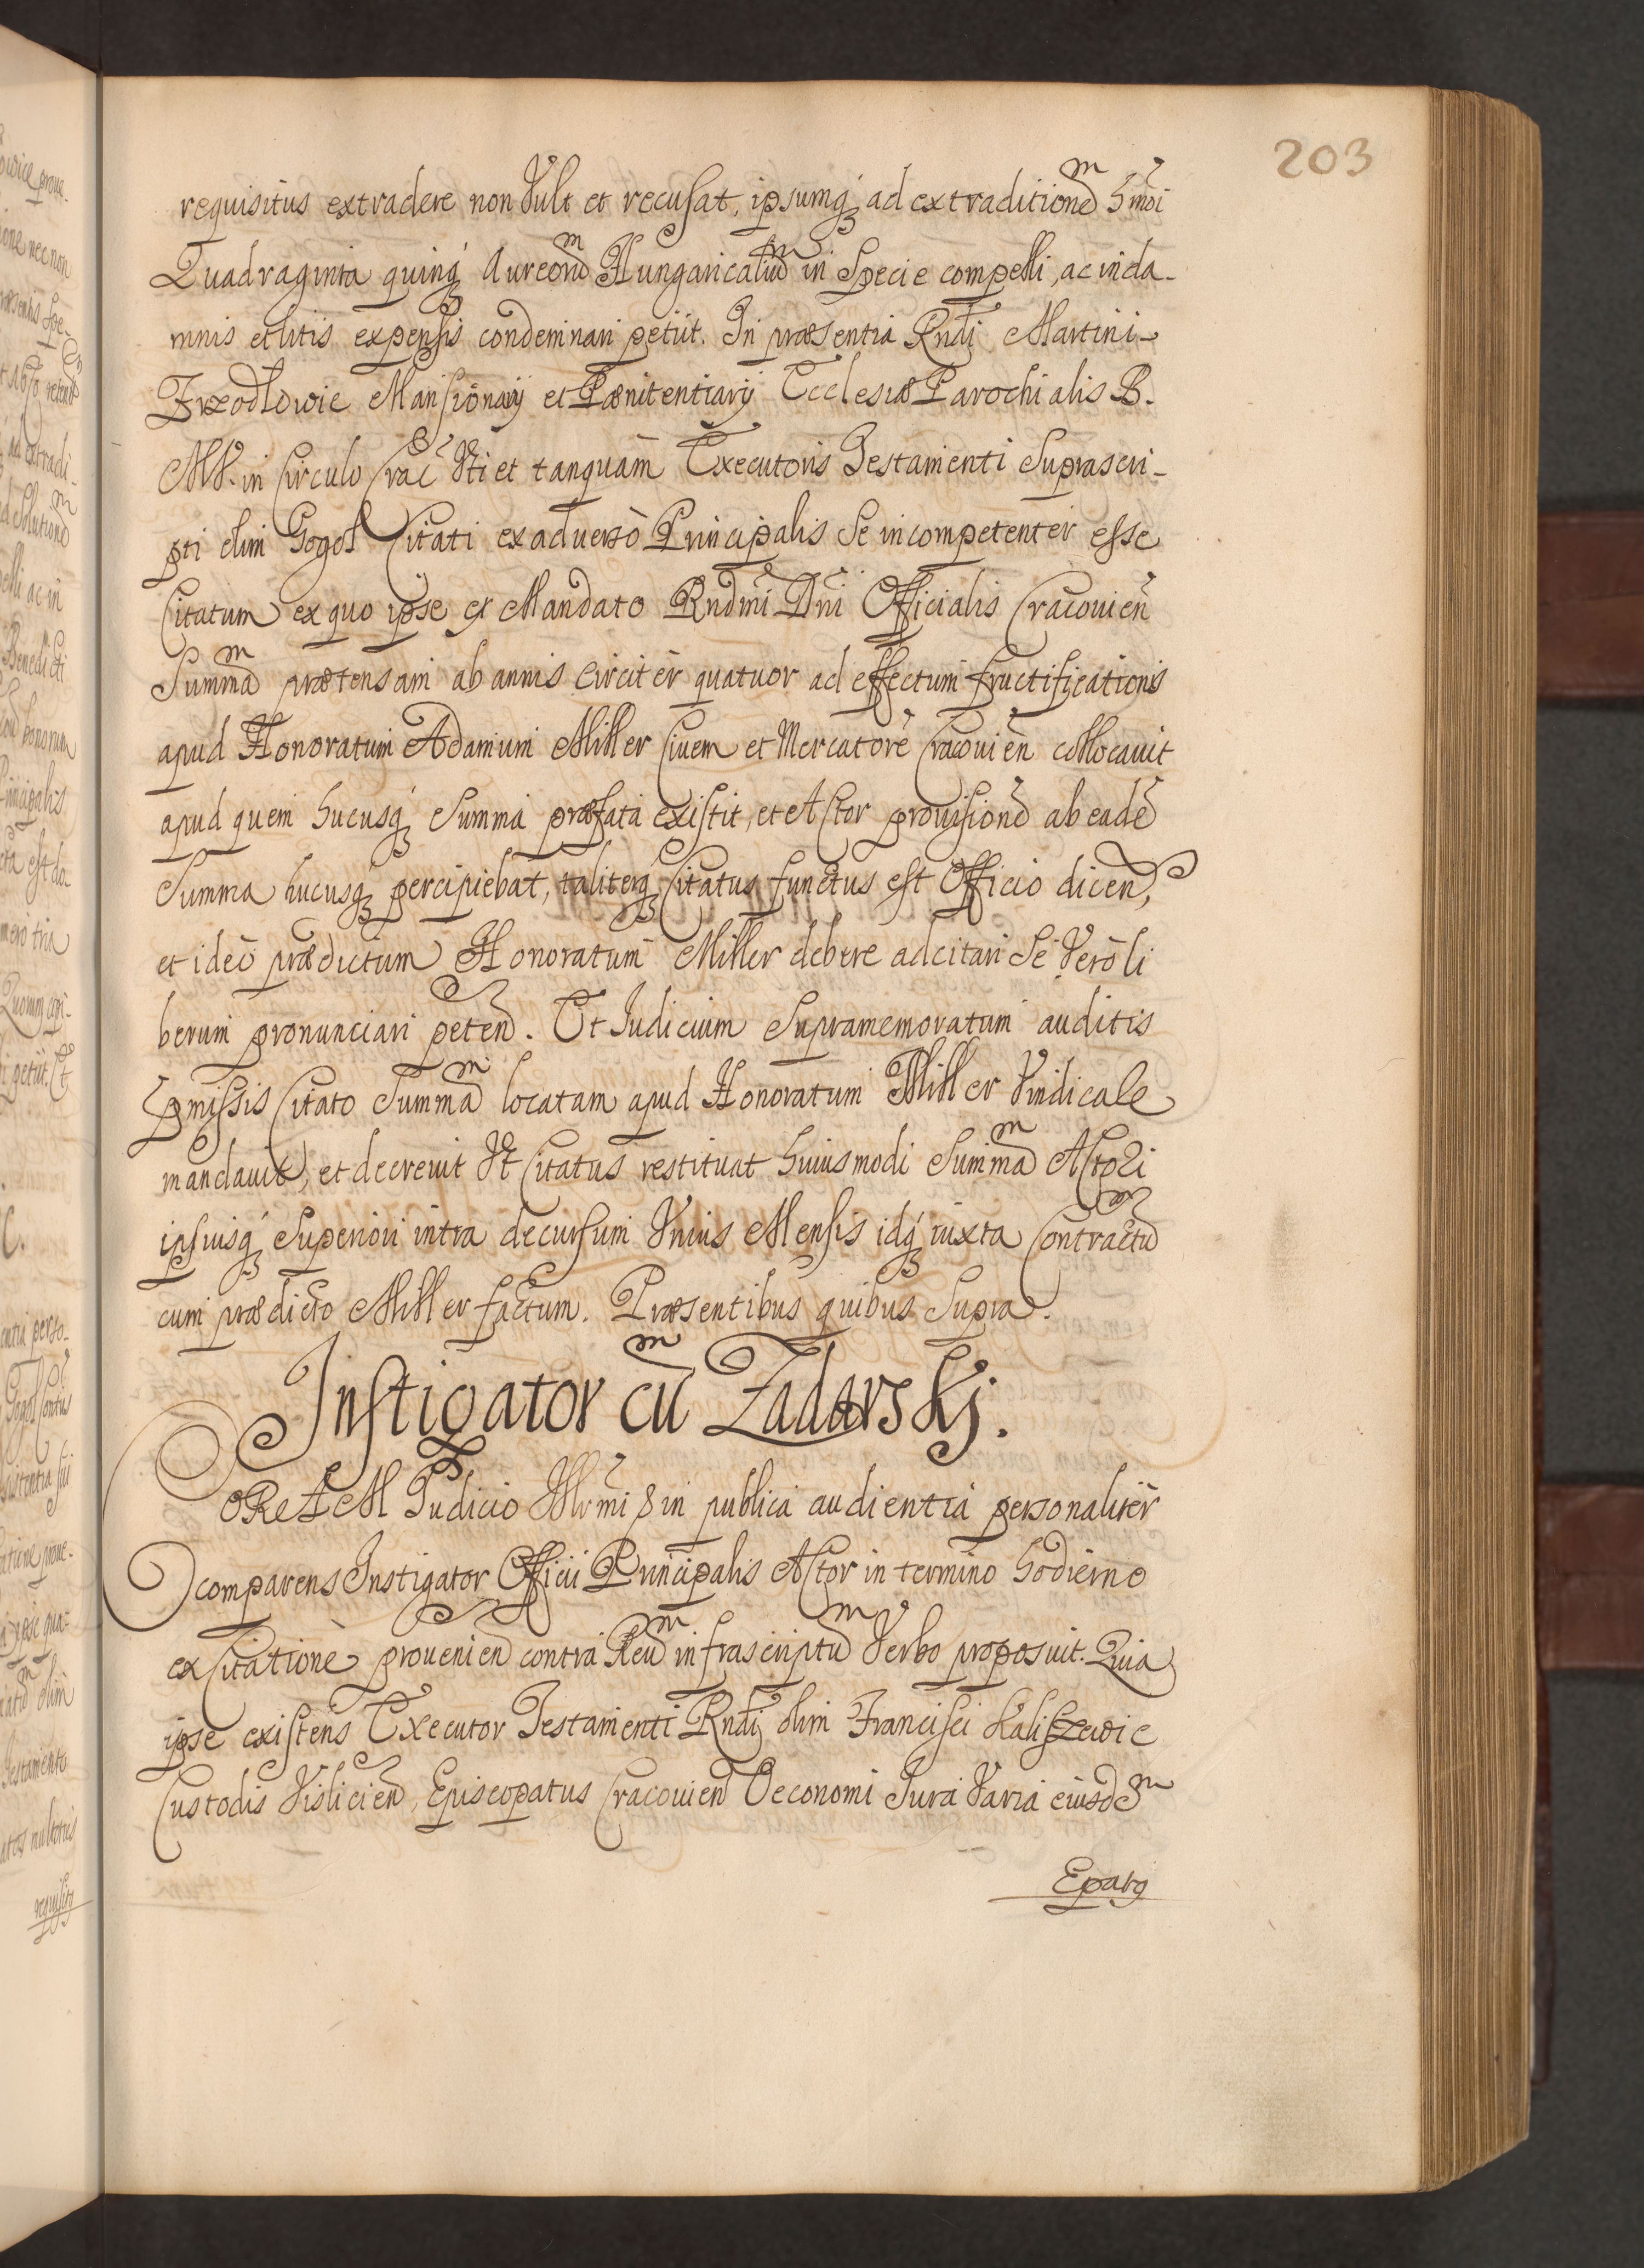 203
requisitus extradere non Vult et recusat, ipsumq̃ ad extraditionem hmõi
Quadraginta quinq̃ Aureorum Hungaricalium in Specie compelli, ac in da-
mnis et litis expensis condemnari petiit. In præsentia Rndi Martini
Frzodlowic Mansionarij et Pœnitentiarij Ecclesiæ Parochialis B.
M.V. in Circulo Crac̃ Vti et tanquam Executoris Testamenti Suprascri-
pti olim Gogol Citati ex aduerso Principalis Se incompetenter esse
Citatum ex quo ipse ex Mandato Rndmi Dni Officialis Cracouieñ
Summam prætensam ab annis circiter quatuor ad effectum fructificationis
apud Honoratum Adamum Miller Ciuem et Mercatorẽ Cracouieñ collocauit
apud quem hucusq̃ Summa præfata existit, et Actor prouisionẽ ab eadẽ
Summa hucusq̃ percipiebat, taliterq̃ Citatus functus est Officio dicen,
et ideo prædictum Honoratum Miller debere adcitari Se Vero li
berum pronunciari peteñ. Et Iudicium Supramemoratum auditis
p̃missis Citato Summam locatam apud Honoratum Miller Vindicare
mandauit, et decreuit Vt Citatus restituat huiusmodi Summam Actori
ipsiusq̃ Superiori intra decursum Vnius Mensis idq̃ iuxta Contractum
cum prædicto Miller factum. Præsentibus quibus Supra.
Instigator cũm Zadarskj.
CORAM Iudicio Illrmi & in publica audientia personaliter
comparens Instigator Officij Principalis Actor in termino hodierno
ex Citatione prouenieñ contra Reum infrascriptum Verbo proposuit. Quia
ipse existens Executor Testamenti Rndi olim Francisci Kaliszewic
Custodis Vislicieñ, Episcopatus Cracouieñ Oeconomi Iura Varia eiusdem
Eparg